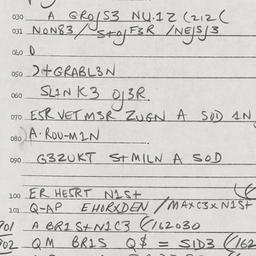 030 A GRO/S3 NU.1Z (212(
031 NON83/ S+OJF3R /NEJS/3
040 D
050 )+GRABL3N
060 SL1NK3 OJ3R
070 ESR VETM3R ZUGN A SOD 1N
080 A.ROU-M1N
090 G3ZUKT S+M1LN A SOD
100 ER HESRT N1S+
101 Q-AP EHORXDEN /MAXC3XN1S+
701 A BR1S+N1C3 (/162030
702 QM BR1S Q$ = S1D3 (/162